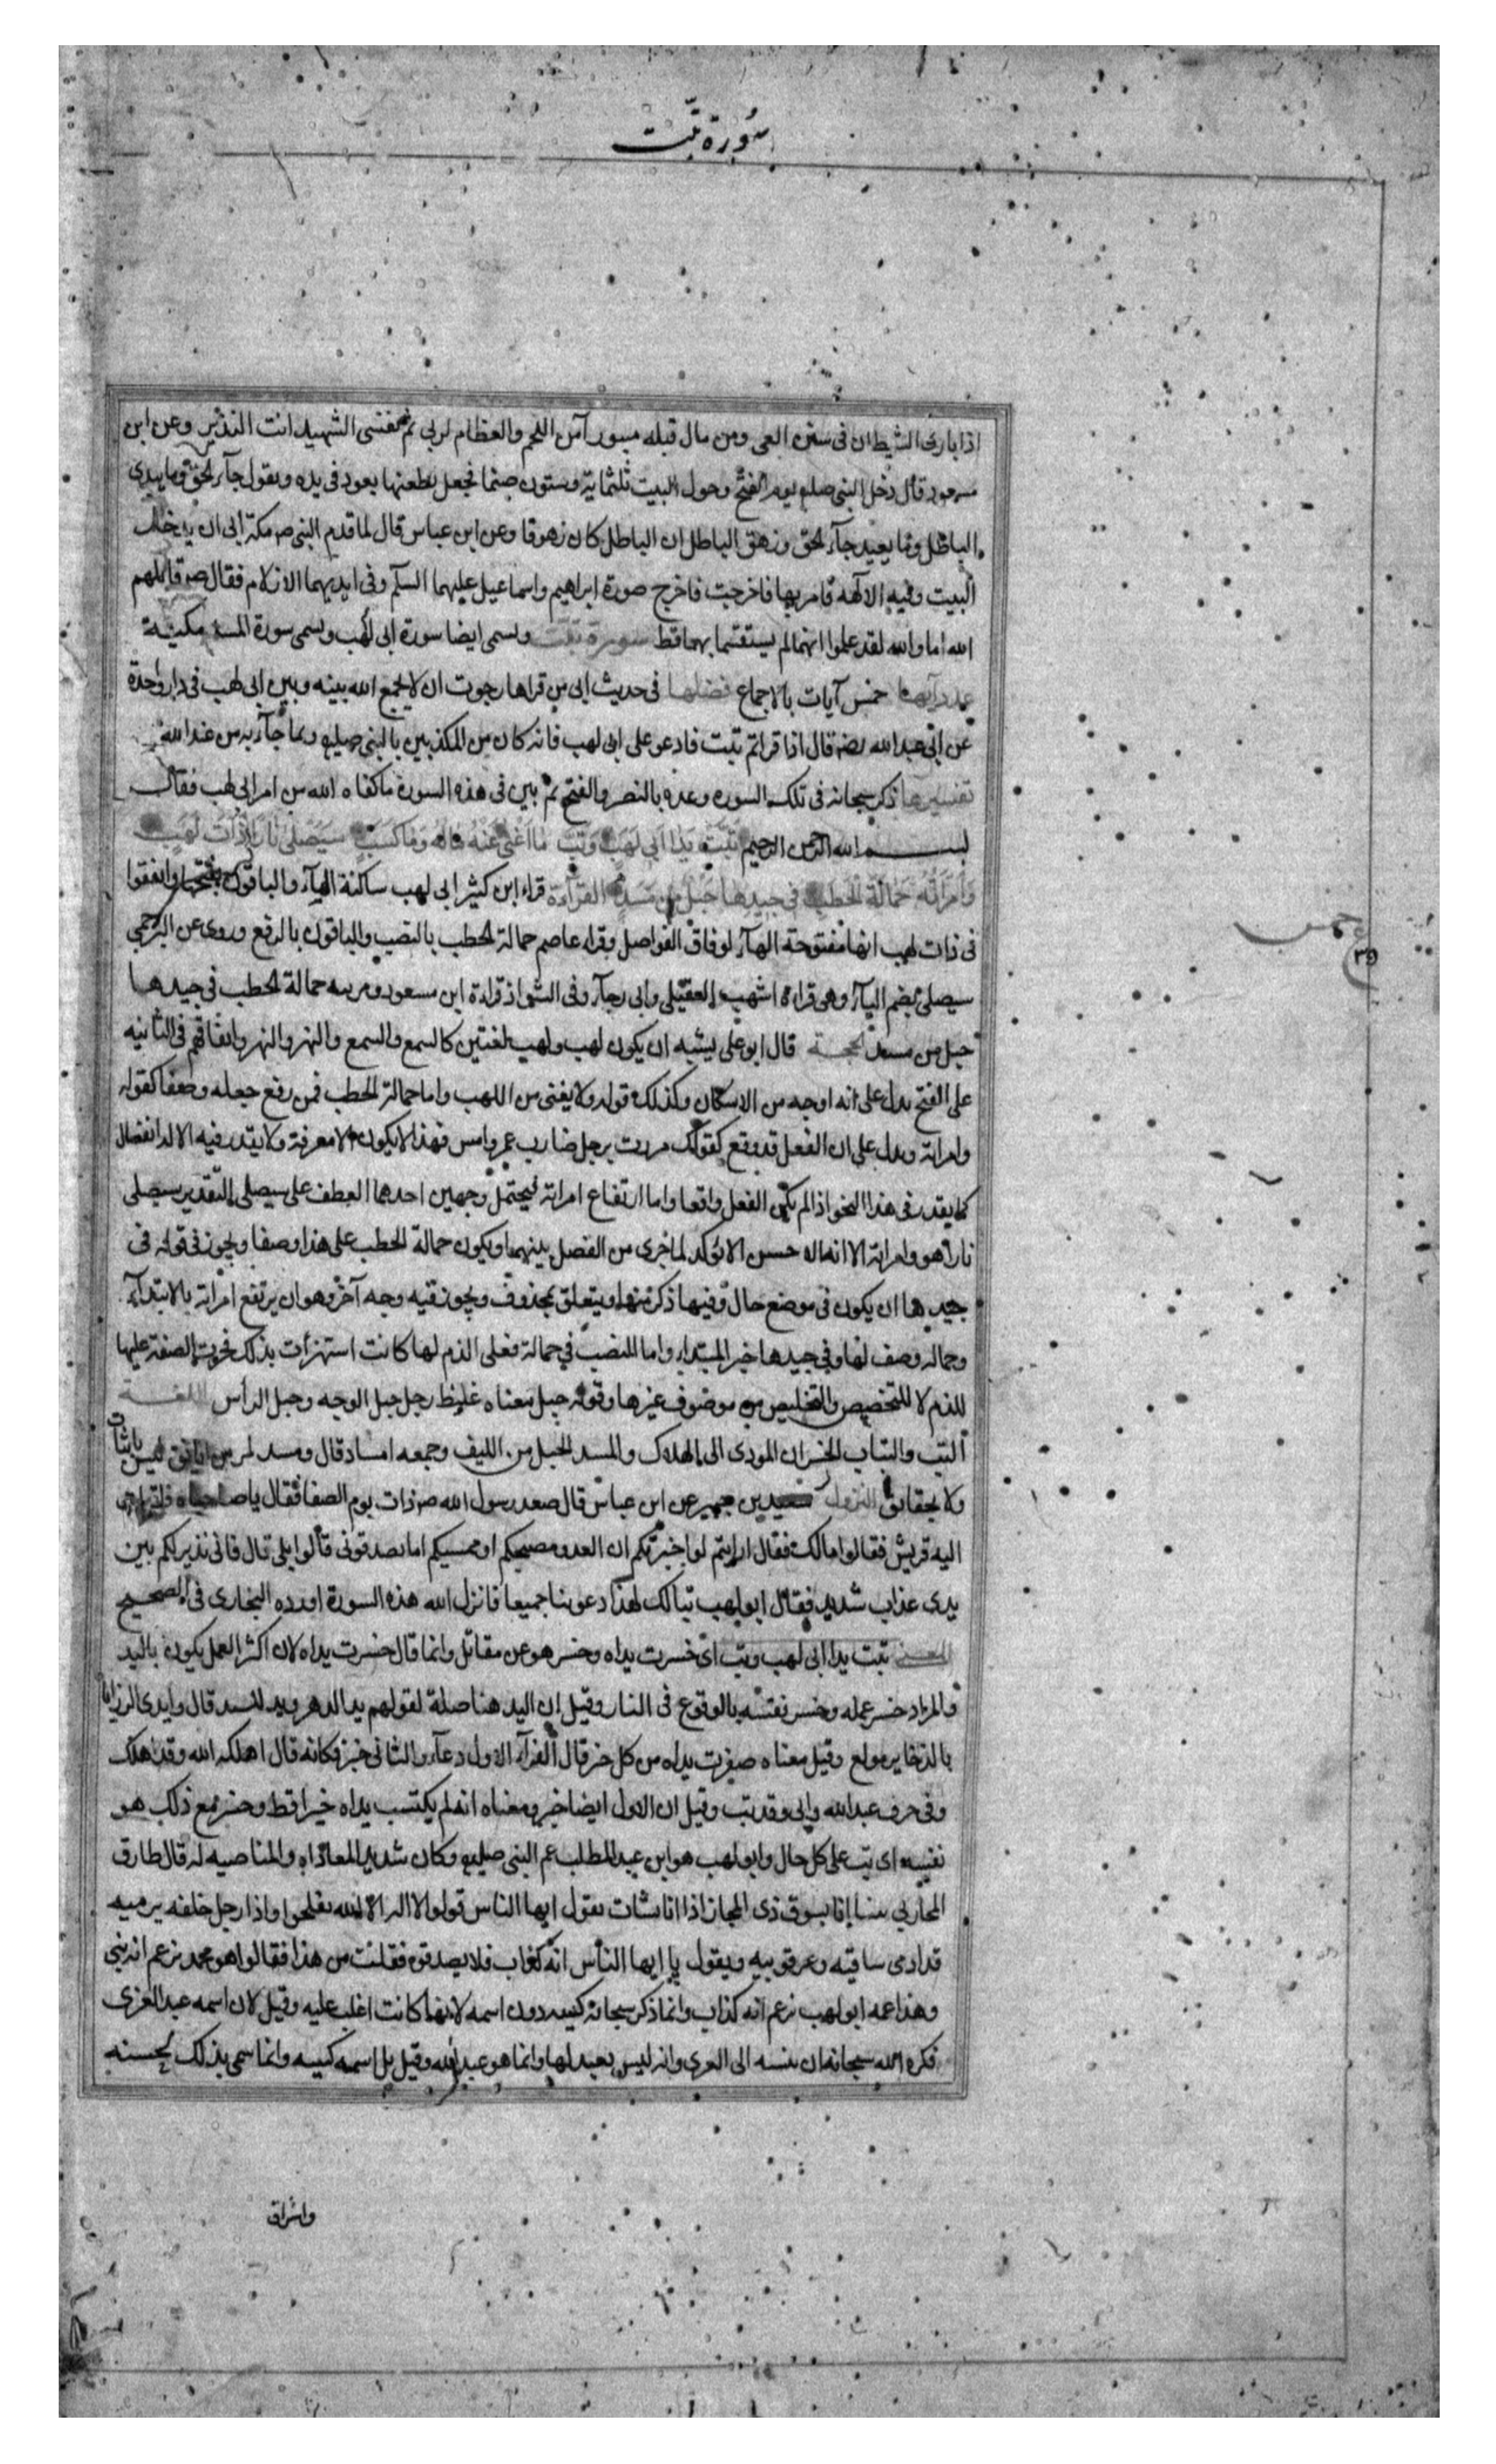 سورة تبت
اذا بارى الشيطان فى سنن الغى ومن مال قبله مبور آمن اللحم والعظام لربى ثم نفسى الشهيد انت النذير وعن ابن
مسعود قال دخل النبى صلعم يوم الفتح وحول البيت ثلثماية وستون صنما فجعل يطعنها بعود فى يده ويقول جآء الحق وما يبدى
الباطل وما يعيد جآء الحق وزهق الباطل ان الباطل كان زهوقا وعن ابن عباس قال لما قدم النبى ص مكة ابى ان يدخل
البيت وفيه الآلهة فامر بها فاخرجت فاخرج صورة ابراهيم واسماعيل عليهما السلم وفى ايديهما الازلام فقال ص قاتلهم
الله اما والله لقد علموا انهما لم يستقسما بهما قط سورة تبت وتسمى ايضا سورة ابى لهب وتسمى سورة المسد مكية
عدد آيها خمس آيات بالاجماع فضلها فى حديث ابى من قراها رجوت ان لا يجمع الله بينه وبين ابى لهب فى دار واحدة
عن ابى عبد الله رضه قال اذا قراتم تبت فادعو على ابى لهب فانه كان من المكذبين بالنبى صلعم وبما جآء به من عند الله
تفسيرها ذكر سبحانه فى تلك السورة وعده بالنصر والفتح ثم بين فى هذه السورة ما كفاه الله من امر ابى لهب فقال
بسم الله الرحمن الرحيم تَبَّتْ يَدَا اَبى لَهَبٍ وَتَبَّ مَا اَغْنى عَنْهُ مَالُهُ وَمَا كَسَبَ سَيَصْلى نَارًا ذَاتَ لَهَبٍ
وَامْرَاَتُهُ حَمَّالَةَ الْحَطَبِ فى جيدِهَا حَبْلٌ مِنْ مَسَدٍ القرآءة قراء ابن كثير ابى لهب ساكنة الهآء والباقون بفتحها واتفقوا
فى ذات لهب انها مفتوحة الهآء لوفاق الفواصل وقراء عاصم حمالة الحطب بالنصب والباقون بالرفع وروى عن البرجمى
سيصلى بضم اليآء وهى قراءة اشهب العقيلى وابى رجآء وفى الشواذ قراءة ابن مسعود ومريته حمالة الحطب فى جيدها
حبل من مسد الحجة قال ابو على يشبه ان يكون لهب ولهب لغتين كالسمع والسمع والنهر والنهر واتفاقهم فى الثانيه
على الفتح يدل على انه اوجه من الاسكان وكذلك قوله ولا يغنى من اللهب واما حمالة الحطب فمن رفع جعله وصفا كقوله
وامراته ويدل على ان الفعل قد وقع كقولك مررت برجل ضارب عمرو امس فهذا لا يكون الا معرفة ولا يقدر فيه الا الانفصال
كما يقدر فى هذا النحو اذا لم يكن الفعل واقعا واما ارتفاع امراته فيحتمل وجهين احدهما العطف على سيصلى التقدير سيصلى
نارا هو وامراته الا انه حسن الا يؤكد لما جرى من الفصل بينهما ويكون حمالة الحطب على هذا وصفا ويجوز فى قوله فى
جيدها ان يكون فى موضع حال وفيها ذكر منها ويتعلق بمحذوف ويجوز فيه وجه آخر وهو ان يرتفع امراته بالابتدآء
وحماله وصف لها وفى جيدها خبر المبتداء واما النصب فى حمالة فعلى الذم لها كانت اشتهرت بذلك فجرت الصفة عليها
للذم لا للتخصيص والتخليص من موصوف غيرها وقوله حبل معناه غليظ رجل حبل الوجه وحبل الراس اللغة
التب والتباب الخسران المودى الى الهلاك والمسد الحبل من الليف وجمعه امساد قال ومسد امر من ايانق ليس بانياب
ولا بحقائق النزول سعيد بن جبير عن ابن عباس قال صعد رسول الله ص ذات يوم الصفا فقال يا صباحاه فاقبلت
اليه قريش فقالوا مالك فقال ارايتم لو اخبرتكم ان العدو مصبحكم او ممسيكم اما تصدقونى قالوا بلى قال فانى نذير لكم بين
يدى عذاب شديد فقال ابو لهب تبا لك لهذا دعوتنا جميعا فانزل الله هذه السورة اورده البخارى فى الصحيح
المعنى تبت يدا ابى لهب وتب اى خسرت يداه وخسر هو عن مقاتل وانما قال خسرت يداه لان اكثر العمل يكون باليد
والمراد خسر عمله وخسر نفسه بالوقوع فى النار وقيل ان اليد هنا صلة لقولهم يد الدهر ويد السد قال وايدى الرزايا
بالذخاير مولع وقيل معناه صفرت يداه من كل خير قال الفرآء الاول دعآء والثانى خبر فكانه قال اهلكه الله وقد هلك
وفى حرف عبد الله وابى وقد تب وقيل ان الاول ايضا خبر ومعناه انه لم يكتسب يداه خيرا قط وخسر مع ذلك هو
نفسه اى تب على كل حال وابو لهب هو ابن عبد المطلب عم النبى صلعم وكان شديد المعاداة والمناصبه له قال طارق
المحاربى بينا انا بسوق ذى المجاز اذا انا بشاب يقول ايها الناس قولوا لا اله الا الله تفلحوا واذا رجل خلفه يرميه
قد ادمى ساقيه وعرقوبيه ويقول يا ايها الناس انه كذاب فلا تصدقوه فقلت من هذا فقالوا هو محمد يزعم انه نبى
وهذا عمه ابو لهب يزعم انه كذاب وانما ذكر سبحانه كنيته دون اسمه لانها كانت اغلب عليه وقيل لان اسمه عبد العزى
فكره الله سبحانه ان ينسبه الى العزى وانه ليس بعبد لها وانما هو عبد الله وقيل بل اسمه كنيته وانما سمى بذلك لحسنه
واشراق